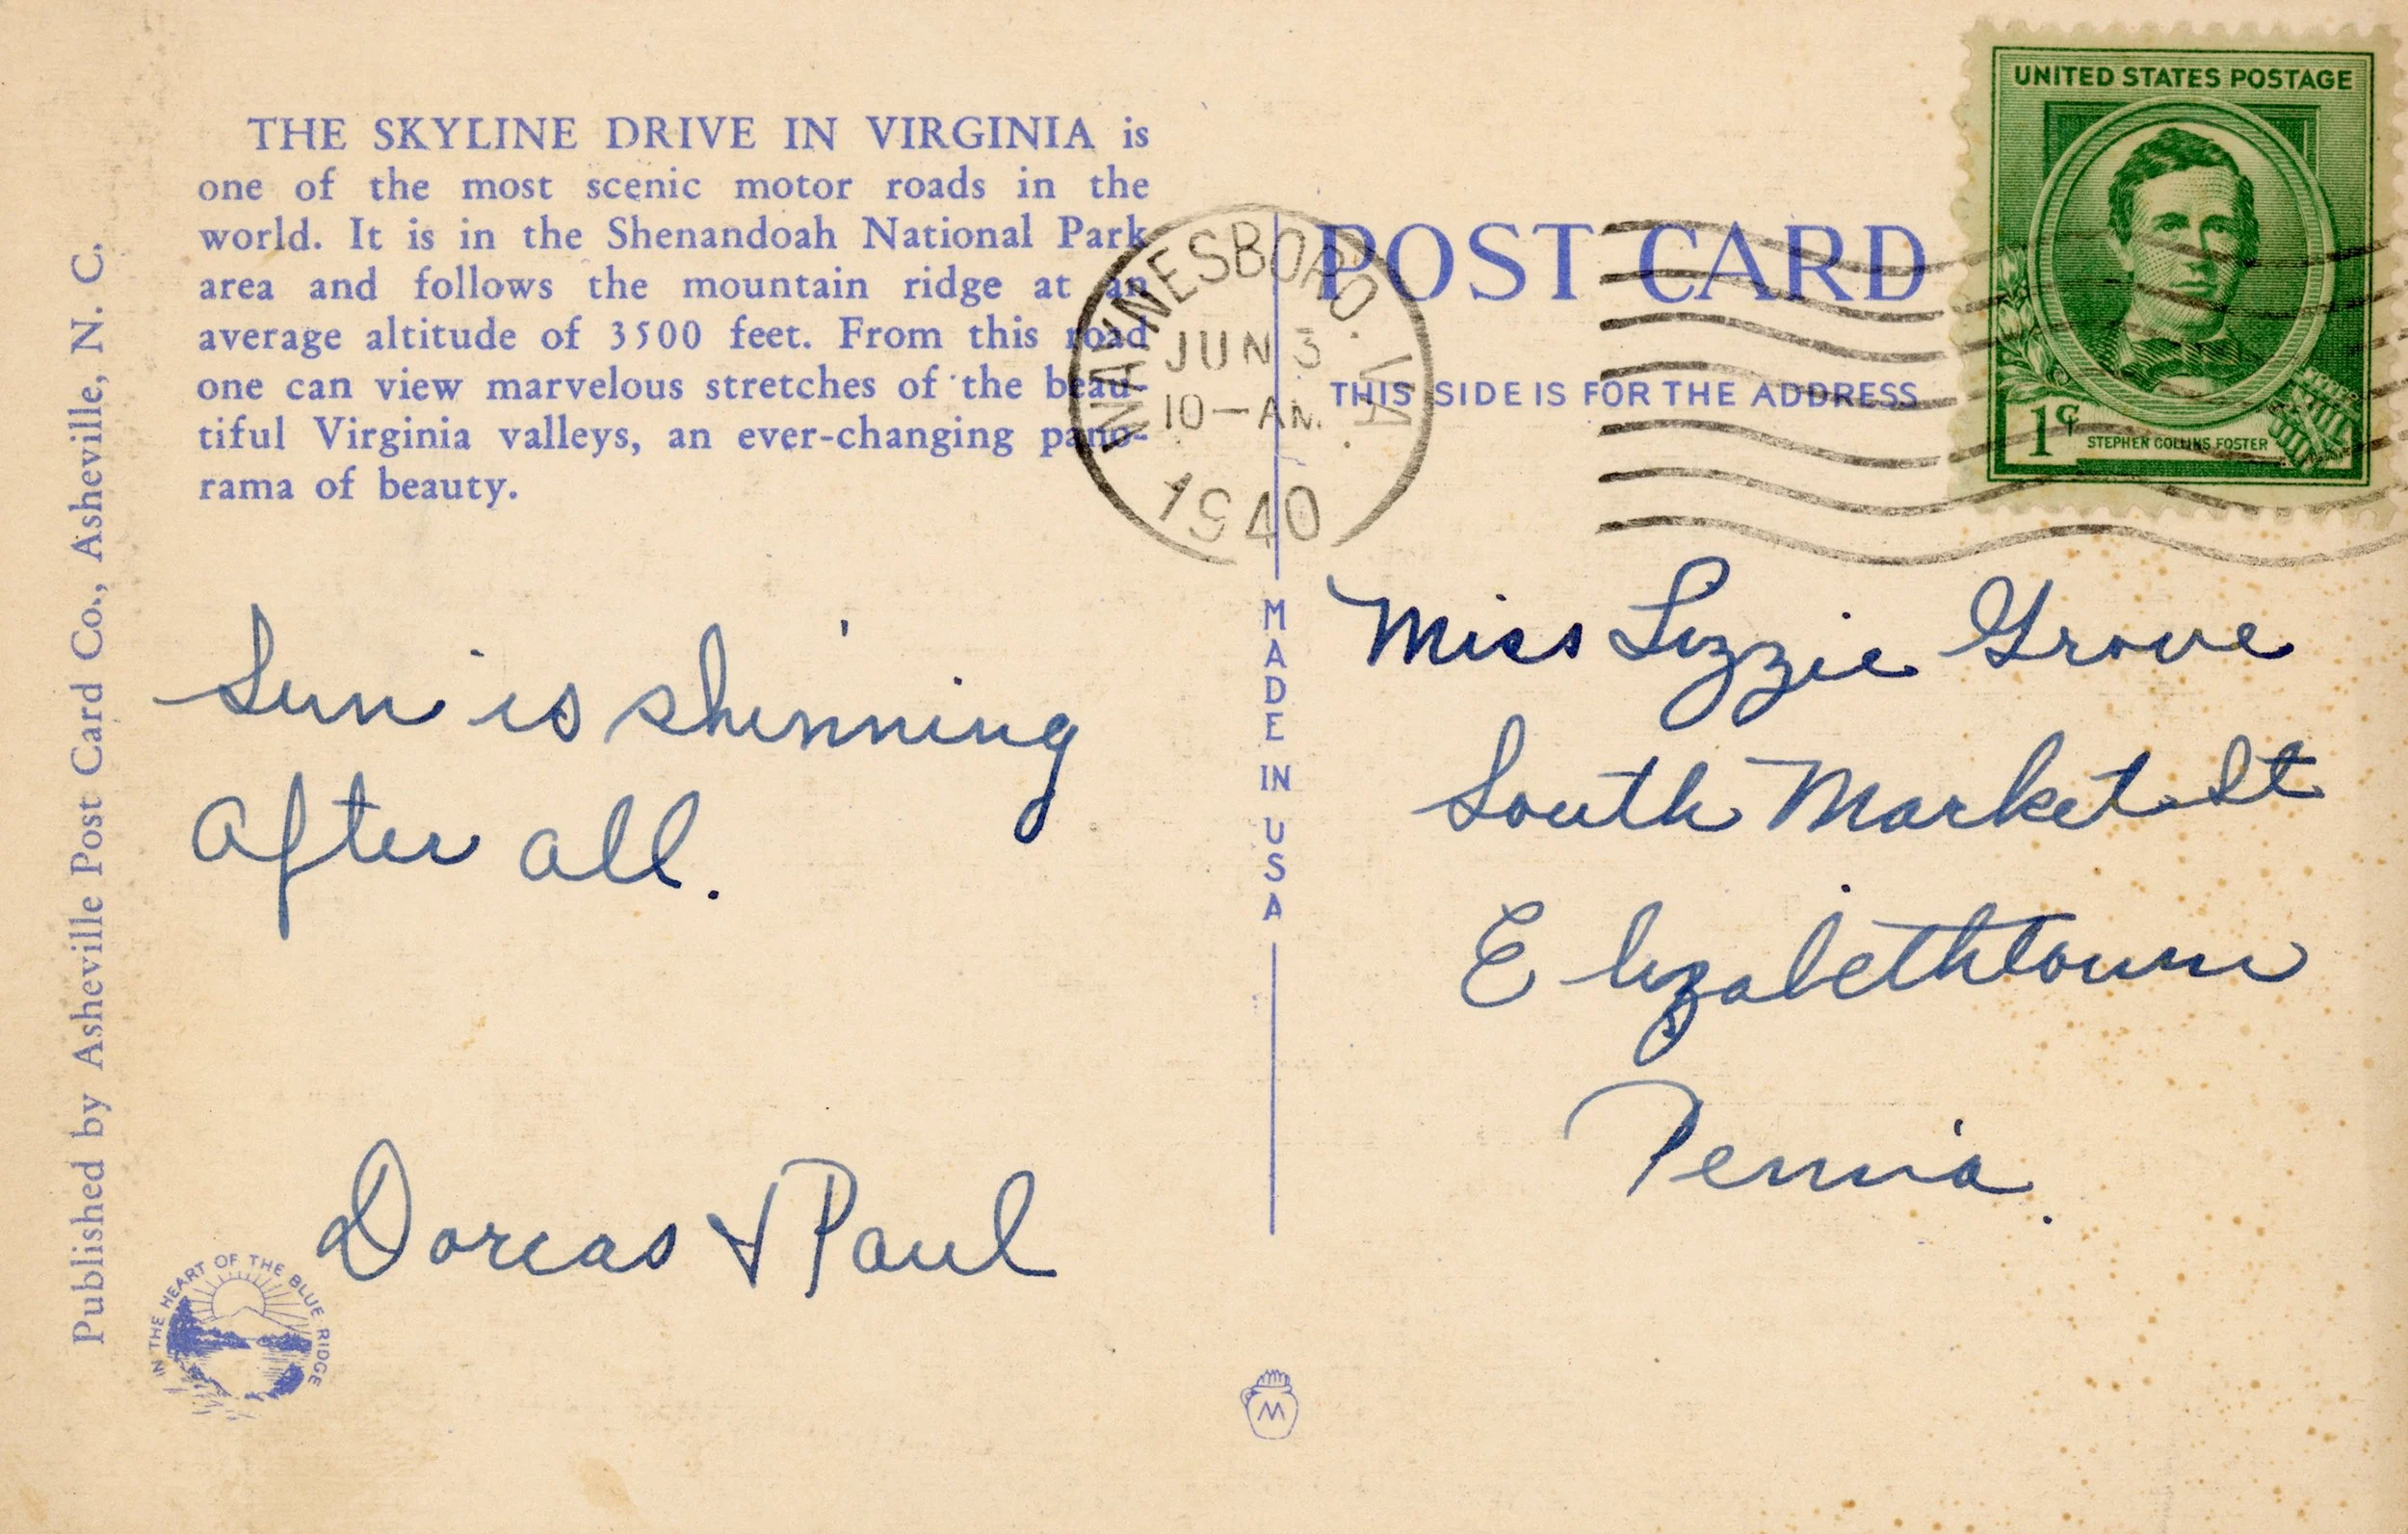 THE SKYLINE DRIVE IN VIRGINIA is
one of the most scenic motor roads in the
world. It is in the Shenandoah National Park
area and follows the mountain ridge at an
average altitude of 3500 feet. From this road
one can view marvelous stretches of the beau-
tiful Virginia valleys, an ever-changing pano-
rama of beauty.
Published by Asheville Post Card Co., Asheville, N. C.
Sun is shinning
after all.
Dorcas & Paul
IN THE HEART OF THE BLUE RIDGE
WAYNESBORO. VA.
JUN 3
10-AM.
1940
MADE IN USA
M
POST CARD
THIS SIDE IS FOR THE ADDRESS
UNITED STATES POSTAGE
1¢
STEPHEN COLLINS FOSTER
Miss Lizzie Grove
South Market St
Elizabethtown
Penn'a.